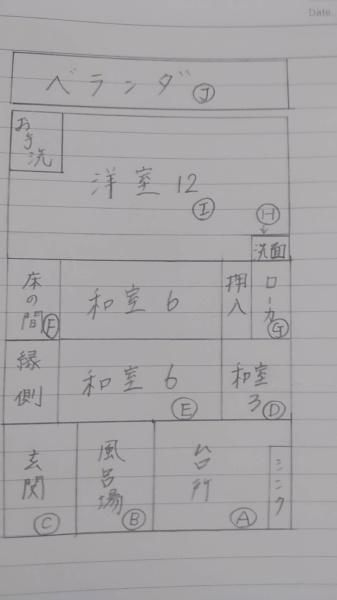 Date
ベランダ Ⓙ
お手洗
洋室 12
Ⓘ
Ⓗ
洗面
床の間 Ⓕ
和室 6
押入
ローカ Ⓖ
縁側
和室 6
Ⓔ
和室
3 Ⓓ
玄関
Ⓒ
風呂場
Ⓑ
台所
Ⓐ
シンク